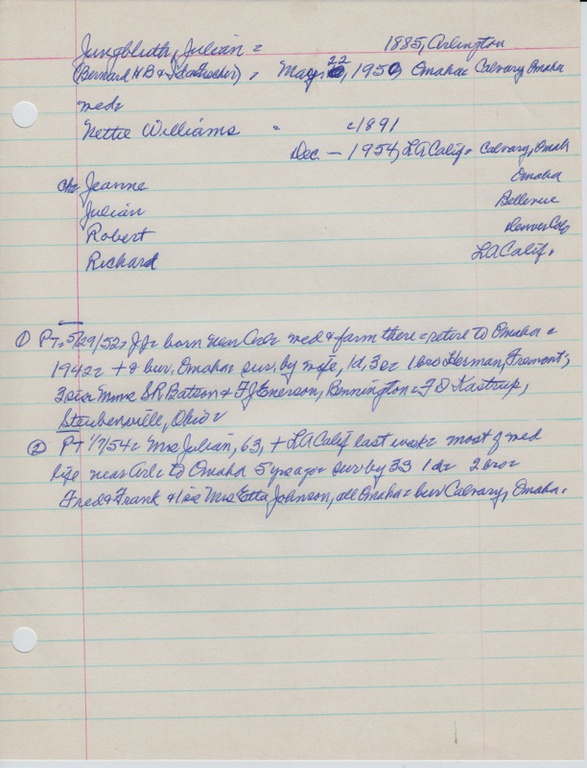 Jungbluth, Julian = 1885, Arlington
(Bernard H B & Ida Fischer) = May 22, 1950, Omaha = Calvary, Omaha
med =
Nettie Williams = c1891
Dec. — 1954, LA Calif = Calvary, Omah
ch = Jeanne Omaha
Julian Bellevue
Robert Denver Colo
Richard LA Calif.
① PT = 5/29/52 = born near Arl = med & farm there = retire to Omaha =
1942 = + & bur. Omaha = sur. by wife, 1d, 3s = 1 bro Herman, Fremont;
3 sis = Mmes S R Batson & F J Emerson, Bennington = F D Kastrup,
Steubenville, Ohio =
② PT 1/7/54 = Mrs Julian, 63, + LA Calif last week = most of med
life near Arl = to Omaha 5 yrs ago = sur by 3S 1d = 2 bros =
Fred & Frank & 1 sis Mrs Etta Johnson, all Omaha = bur Calvary, Omaha.